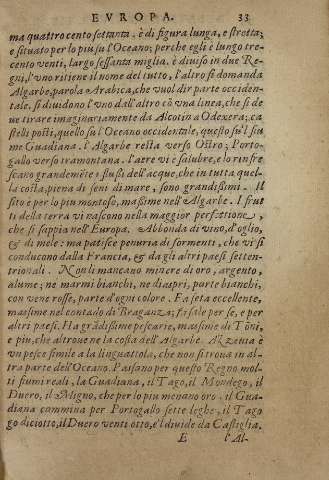 EVROPA. 33
ma quattro cento settanta. è di figura lunga, e stretta;
e situato per lo piu su l'Oceano; perche egli è lungo tre-
cento venti, largo sessanta miglia. è diuiso in due Re-
gni, l'vno ritiene il nome del tutto, l'altro si domanda
Algarbe, parola Arabica, che vuol dir parte occiden-
tale. si diuidono l'vno dall'altro cõ vna linea, che si de
ue tirare imaginariamente da Alcotin a Odexera; ca
stelli posti, quello su l'Oceano occidentale, questo su'l fiu
me Guadiana. l'Algarbe resta verso Ostro; Porto-
gallo verso tramontana. l'aere vi è salubre, e lo rinfre
scano grandemẽte i flussi dell'acque, che in tutta quel-
la costa, piena di seni di mare, sono grandissimi. Il
sito è per lo piu montoso, massime nell'Algarbe. I frut
ti della terra vi nascono nella maggior perfettione,
che si sappia nell'Europa. Abbonda di vino, d'oglio,
& di mele: ma patisce penuria di formenti, che vi si
conducono dalla Francia, & da gli altri paesi setten-
trionali. Non li mancano miniere di oro, argento,
alume; ne marmi bianchi, ne diaspri, parte bianchi,
con vene rosse, parte d'ogni colore. Fa seta eccellente,
massime nel contado di Braganza; fa sale per se, e per
altri paesi. Ha grãdissime pescarie, massime di Tõni,
e piu, che altroue ne la costa dell'Algarbe. Azzenia è
vn pesce simile a la linguattola, che non si troua in al-
tra parte dell'Oceano. Passano per questo Regno mol-
ti fiumi reali, la Guadiana, il Tago, il Mondego, il
Duero, il Migno, che per lo piu menano oro. il Gua-
diana cammina per Portogallo sette leghe, il Tago
go diciotto, il Duero venti otto, e'l diuide da Castiglia.
E l'Al-